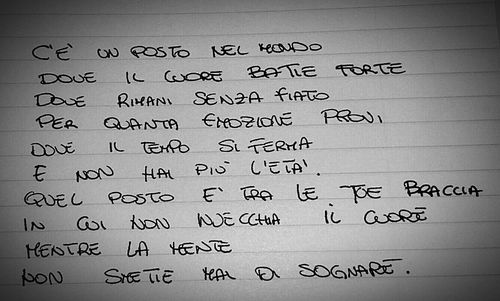 C'È UN POSTO NEL MONDO
DOVE IL CUORE BATTE FORTE
DOVE RIMANI SENZA FIATO
PER QUANTA EMOZIONE PROVI,
DOVE IL TEMPO SI FERMA
E NON HAI PIÙ L'ETÀ.
QUEL POSTO È TRA LE TUE BRACCIA
IN CUI NON INVECCHIA IL CUORE
MENTRE LA MENTE
NON SMETTE MAI DI SOGNARE.